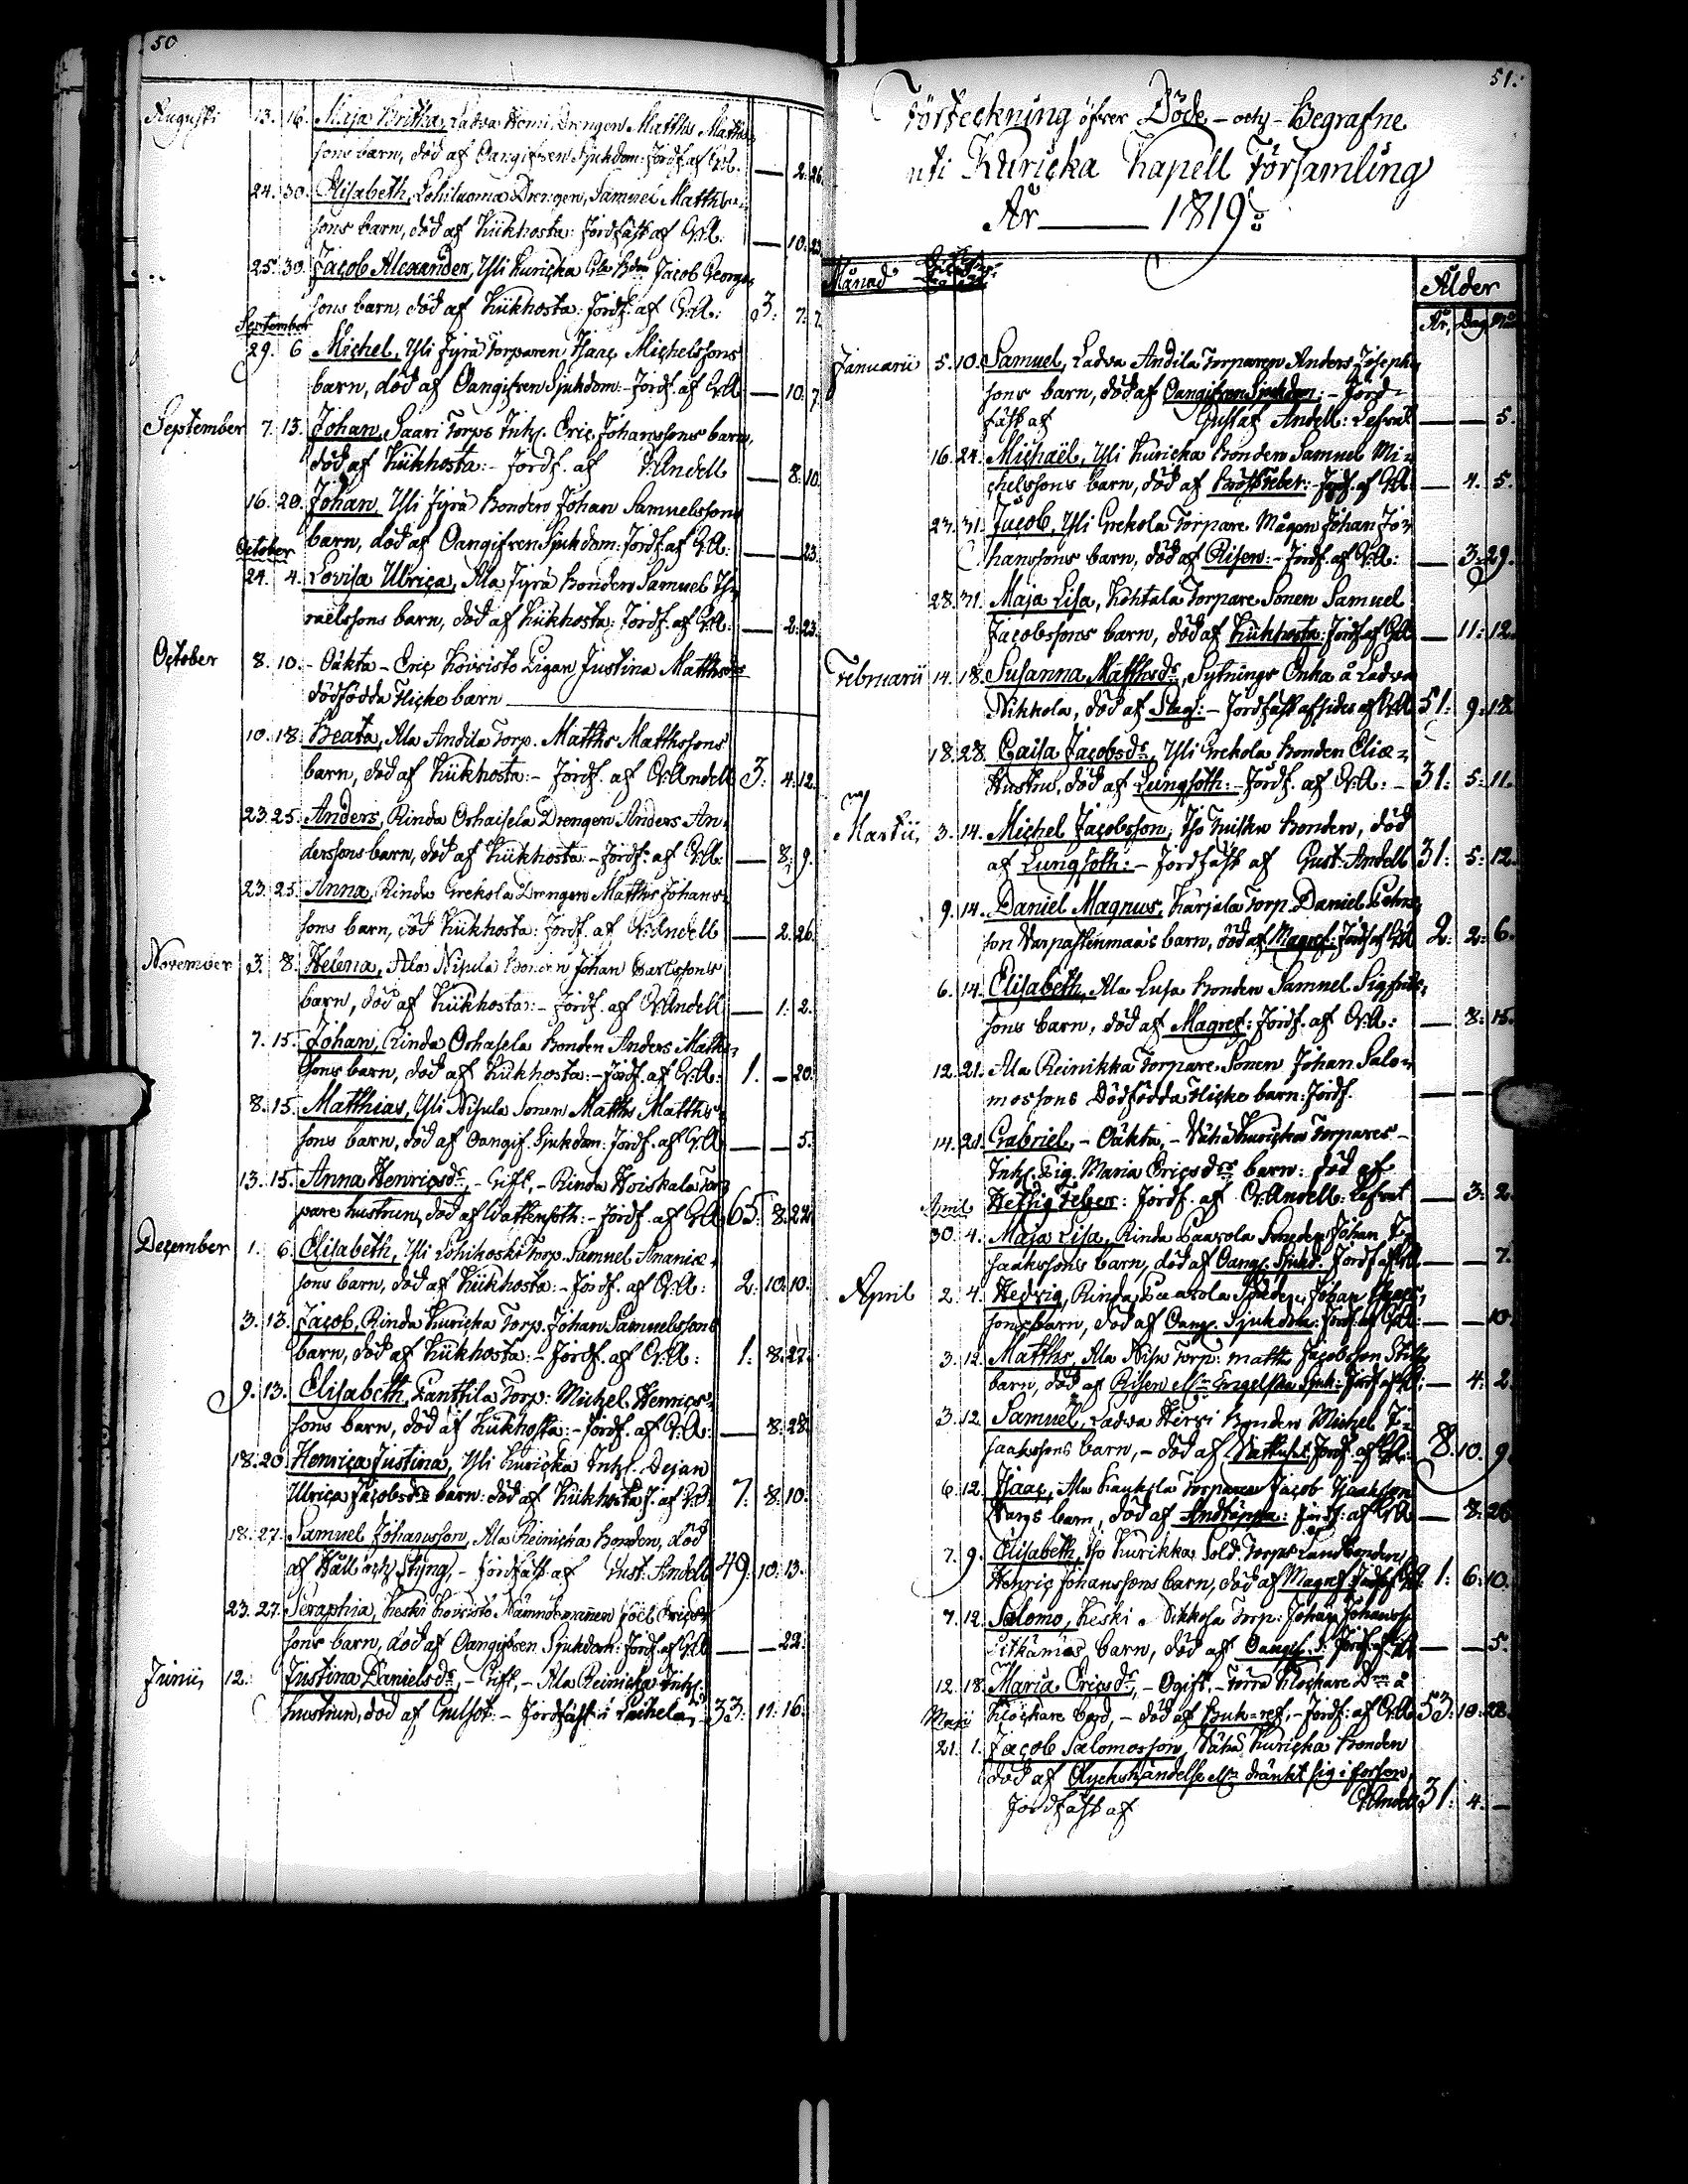 50
Augusti 13. 16. Maja Britha, Ladva Heini Drengen Matths Matths-
sons barn, död af Oangifven Sjukdom: Jordf. af G.A. — 2. 26.
24. 30. Elisabeth, Lohiluoma Drengen, Samuel Matths-
sons barn, död af Kikhosta: Jordfäst af G.A: — 10. 23.
25. 30. Jacob Alexander, Yli Kuricka Jacob Georgs-
sons barn, död af Kikhosta: Jordf. af G.A: 3. 7. 7.
September
29. 6 Michel, Yli Jyrä Torparen Isaac Michelssons
barn, död af Oangifven Sjukdom: - Jordf. af G.A — 10. 7.
September 7. 13. Johan, Saari Torps Inhs. Eric Johanssons barn,
död af Kikhosta: - Jordf. af G. Andell — 8. 10.
16. 20. Johan, Yli Jyrä Bonden Johan Samuelssons
barn, död af Oangifven Sjukdom: Jordf. af G.A: — — 23.
October
24. 4. Lovisa Ulrica, Ala Jyrä Bonden Samuel Is-
raëlssons barn, död af Kikhosta: Jordf. af G.A: — 2: 23.
October 8. 10. - Oäkta - Eric Koivisto Pigan Justina Matthsdrs
dödfödda Flicke barn
10. 18. Beata, Ala Andila Torp. Matths Matthssons
barn, död af Kikhosta: - Jordf. af G. Andell 3: 4: 12.
23. 25. Anders, Rinda Orhaisela Drengen Anders An-
derssons barn, död af Kikhosta: - Jordf: af G.A: — 8: 9.
23. 25. Anna, Rinda Grekola Drengen Matths Johans-
sons barn, död Kikhosta: Jordf. af G. Andell — 2. 26.
November 3. 8. Helena, Ala Nisula Bonden Johan Carlssons
barn, död af Kikhosta: - Jordf. af G. Andell — 1: 2.
7. 15. Johan, Rinda Orhasela Bonden Anders Matths-
sons barn, död af Kikhosta: - Jordf. af G.A: 1. — 20.
8. 15. Matthias, Yli Nisula Sonen Matths Matths-
sons barn, död af Oangif. Sjukdom: Jordf. af G.A — — 5.
13. 15. Anna Henricsdr, - Gift, - Rinda Koiskala Tor-
pare hustrun, död af Vattensoth: - Jordf. af G.A 65: 8: 22.
December 1. 6. Elisabeth, Yli Lohikoski Torp. Samuel Ananiæ-
sons barn, död af Kikhosta: - Jordf. af G.A: 2: 10: 10.
3. 13. Jacob, Rinda Kuricka Torp. Johan Samuelssons
barn, död af Kikhosta: - Jordf. af G.A: 1: 8: 27.
9. 13. Elisabeth, Kanttila Torp: Michel Henrics-
sons barn, död af Kikhosta: - Jordf. af G.A: — 8: 28.
18. 20. Henrica Justina, Yli Kuricka Inhs. Dejan
Ulrica Jacobsdrs barn: död af Kikhosta J. af G.A 7: 8: 10.
18. 27. Samuel Johansson, Ala Reinicka Bonden, död
af Håll och Styng, - Jordfäst af Gust. Andell 49: 10: 13.
23. 27. Seraphia, Keski Koivisto Nämndemannen Joël Erics-
sons barn, död af Oangifven Sjukdom: Jordf. af G.A — — 22.
Junii, 12. Justina Danielsdr, - Gift, - Ala Reinicka Inhs.
hustrun, död af Gulsot: - Jordfäst i Laihela, - 33: 11: 16.
51.
Förteckning öfver Döde - och - Begrafne
uti Kuricka Kapell Församling
År 1819:
Månad
Ålder
År, Dag
Januarii 5. 10. Samuel, Ladva Andila Torparen Anders Josephs-
sons barn, död af Oangifven Sjukdom: - Jord-
fäst af Gustaf Andell: — — 5.
16. 24. Michaël, Yli Kuricka Bonden Samuel Mi-
chelssons barn, död af Bröstfeber: - Jordf. af G.A — 4. 5.
23. 31. Jacob, Yli Grekola Torpare Mågen Johan Jo-
hanssons barn, död af Risen: - Jordf. af G.A: — 3: 29.
28. 31. Maja Lisa, Kohtala Torpare Sonen Samuel
Jacobssons barn, död af Kikhosta: Jordf. af G.A — 11: 12.
Februarii 14. 18. Susanna Matthsdr, Sytnings Enka å Ladva
Nikkola, död af Slag: - Jordfäst af G.A 51: 9: 18.
18. 28. Caisa Jacobsdr, Yli Grekola Bonden Eliæ-
Hustru, död af Lungsoth: - Jordf. af G.A: - 31: 5: 11.
Martii, 3. 14. Michel Jacobsson, Iso Bonden, död
af Lungsoth: - Jordfäst af Gust. Andell 31: 5: 12.
9. 14. Daniel Magnus, Karjala Torp. Daniel
son Varpastenmaa's barn, död af Magref: Jordf. af G.A 2: 2: 6.
6. 14. Elisabeth, Ala Lusa Bonden Samuel Sigfrids-
sons barn, död af Magref: Jordf. af G.A: — 8: 15.
12. 21. Ala Reinikka Torpare Sonen Johan Salo-
mossons Dödfödda Flicke barn: Jordf. — —
14. 21. Gabriel, - Oäkta, - Vähä Kuricka Torpares -
Inhs. Pig. Maria Ericsdrs barn: död af
April Hettsig Feber: Jordf. af G. Andell: — 3: 2.
30. 4. Maja Lisa, Rinda Paavola Johan I-
saakssons barn, död af Oang. Sjukd. Jordf. af G.A — — 7.
April 2. 4. Hedvig, Rinda Paavola Johan Isaacs-
sons barn, död af Oang. Sjukdom: Jordf. af G.A: — — 10.
3. 12. Matths, Ala Nisu Torp: Matths Jacobsson
barn, död af Risen ellr Engelska Sjuk: Jordf. af G.A: — 4: 2.
3. 12. Samuel, Ladva Hirvi Bonden Michel I-
saakssons barn, - död af Jordf. af G.A: 8: 10. 9.
6. 12. Isaac, Ala Torparen Jacob Isaaksson
Vargs barn, död af Andtäppa: Jordf: af G.A — 8: 26.
7. 9. Elisabeth, Iso Kurikka Sold. Torps Landbonden
Henric Johanssons barn, död af Magref Jordf. af G.A 1: 6: 10.
7. 12. Salomo, Keski Torp: Johan Johanss:
Pitkämäs barn, död af Oangif. S: Jordf. af G.A — — 5.
12. 18. Maria Ericsdr, - Ogift, - Förra Klockare Dr å
Maji Klockare bord, - död af Buk=ref, - Jordf: af G.A 53: 10: 28.
21. 1. Jacob Salomosson, Vähä Kuricka Bonden
död af Olyckshändelse ellr dränkt sig i forsen,
Jordfäst af G. Andell 31: 4. —